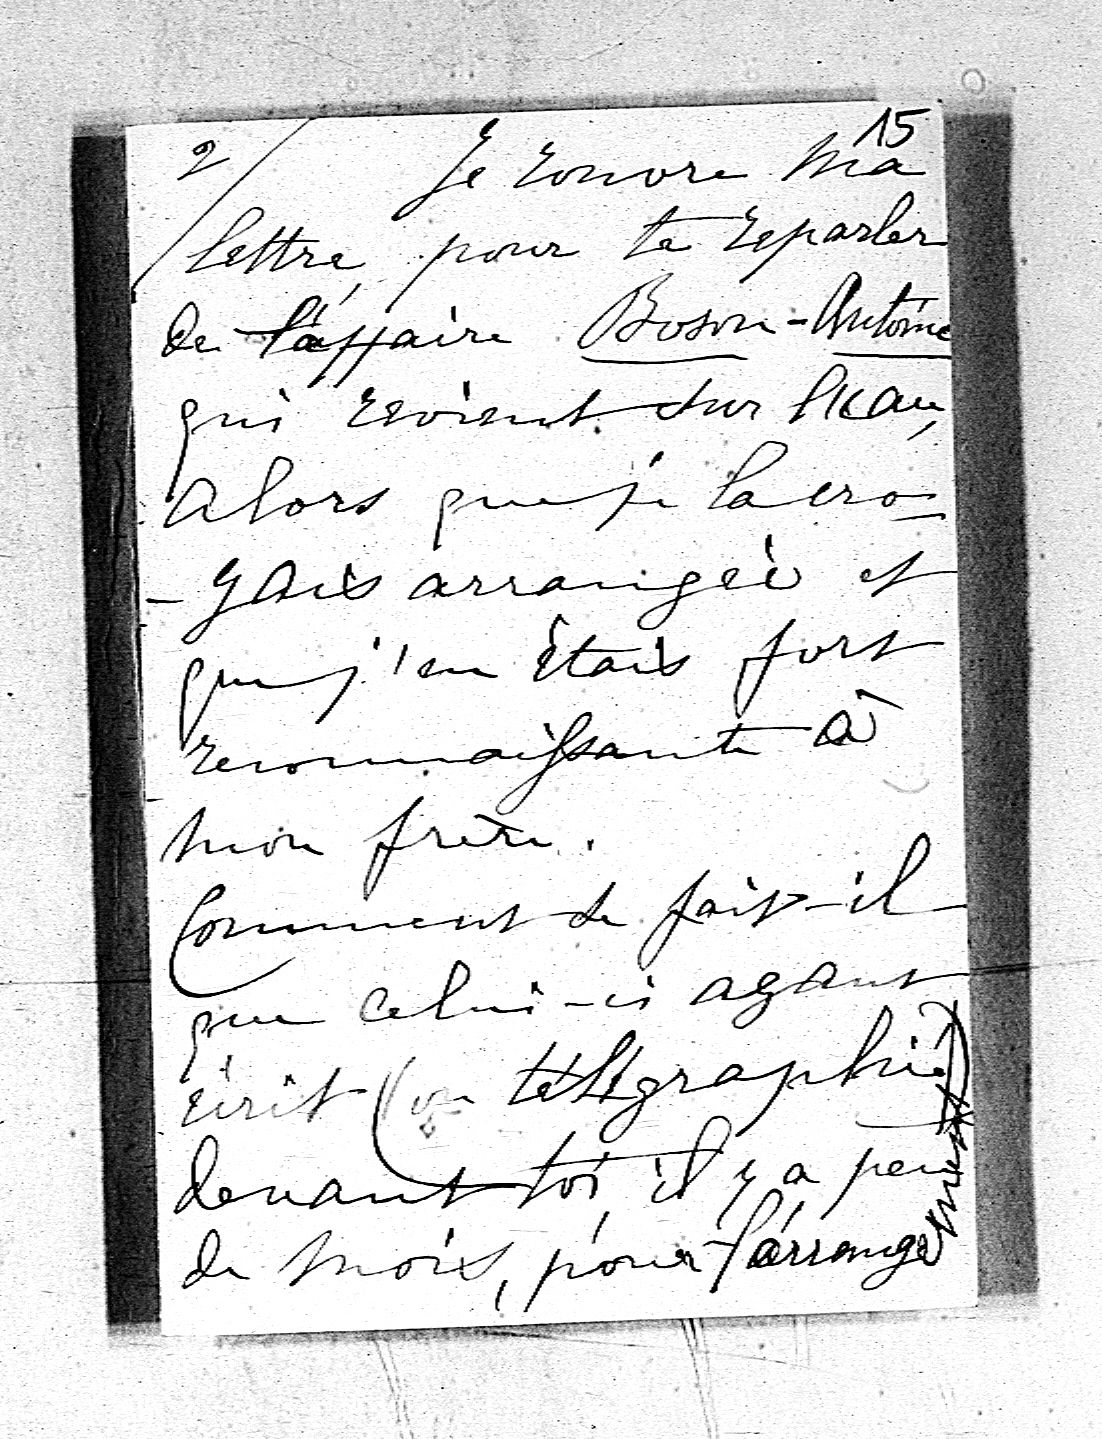 15
2/ Je rouvre ma
lettre, pour te reparler
de l'affaire Boson-Antoine
qui revient sur l'eau,
alors que je la cro-
-yais arrangée et
que j'en étais fort
reconnaissante à
mon frère.
Comment se fait-il
que celui-ci ayant
écrit (ou télégraphié)
devant toi, il y a peu
de mois, pour l'arrangement